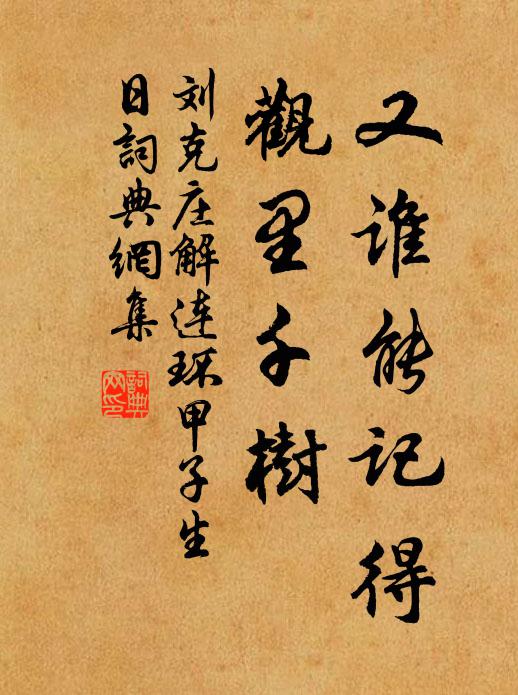 又谁能记得
觀里千樹
刘克庄解連环甲子生
日詞典網集
詞典网印